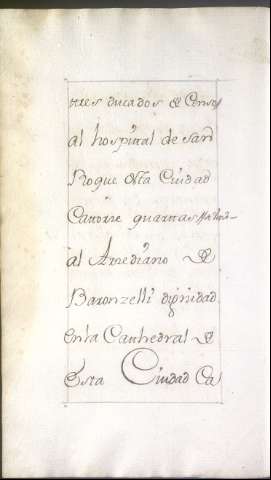 tres ducados de Censo
al hospital de san
Roque desta Ciudad
Catorze quartas
al Arnediano de
Baronzelli dignidad
en la Cathedral de
Esta Ciudad Ca